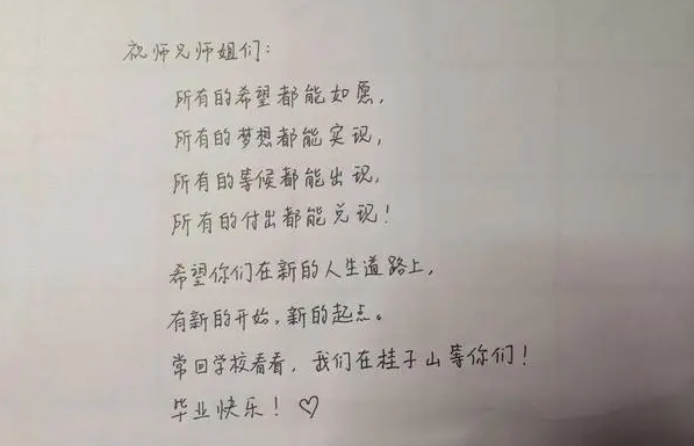 祝师兄师姐们：
所有的希望都能如愿，
所有的梦想都能实现，
所有的等候都能出现，
所有的付出都能兑现！
希望你们在新的人生道路上，
有新的开始，新的起点。
常回学校看看，我们在桂子山等你们！
毕业快乐！♡